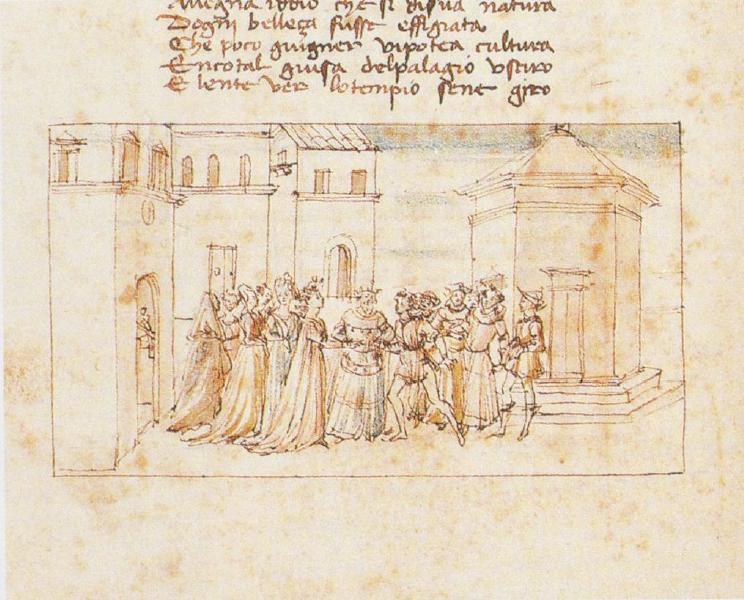 Avegna iddio che si disua natura
Dogni belleça fusse effigiata
Che poco guigner vi potea cultura
En cotal guisa del palagio usciro
E lente ver lo tempio sene giro